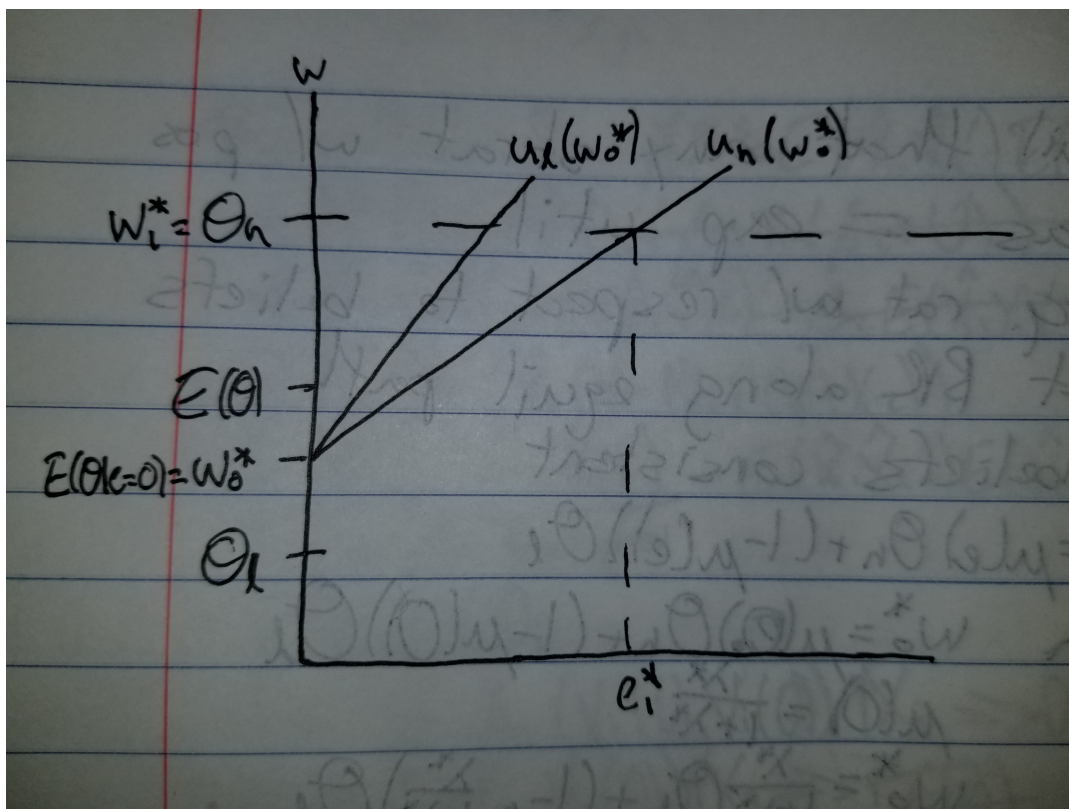 w
u_l(w_0^*) u_h(w_0^*)
w_1^* = θ_h
E(θ)
E(θ|e=0) = w_0^*
θ_l
e_1^*